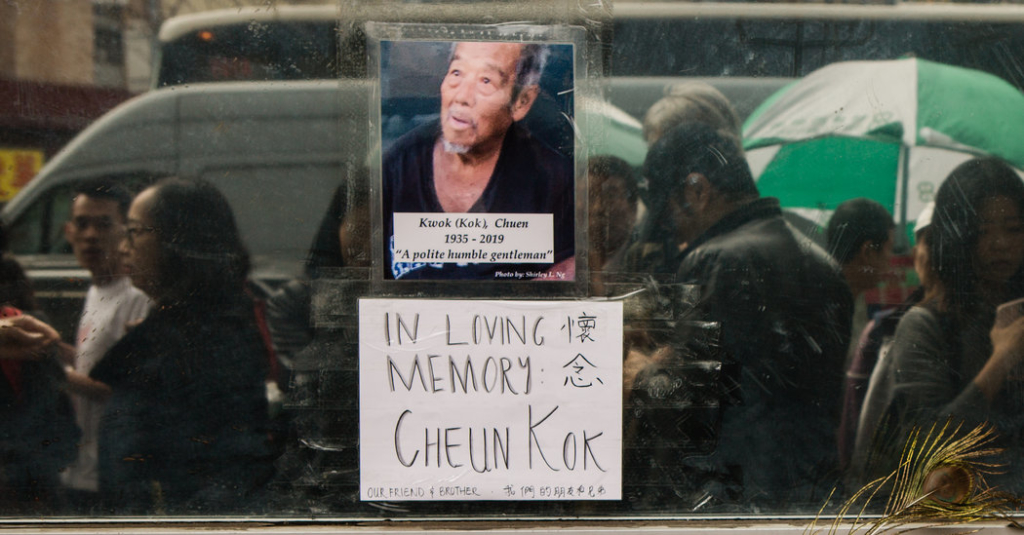 Kwok (Kok), Chuen
1935 - 2019
"A polite humble gentleman"
Photo by: Shirley L. Ng
IN LOVING 懷
MEMORY: 念
CHEUN KOK
OUR FRIEND & BROTHER · 我們的朋友和兄弟